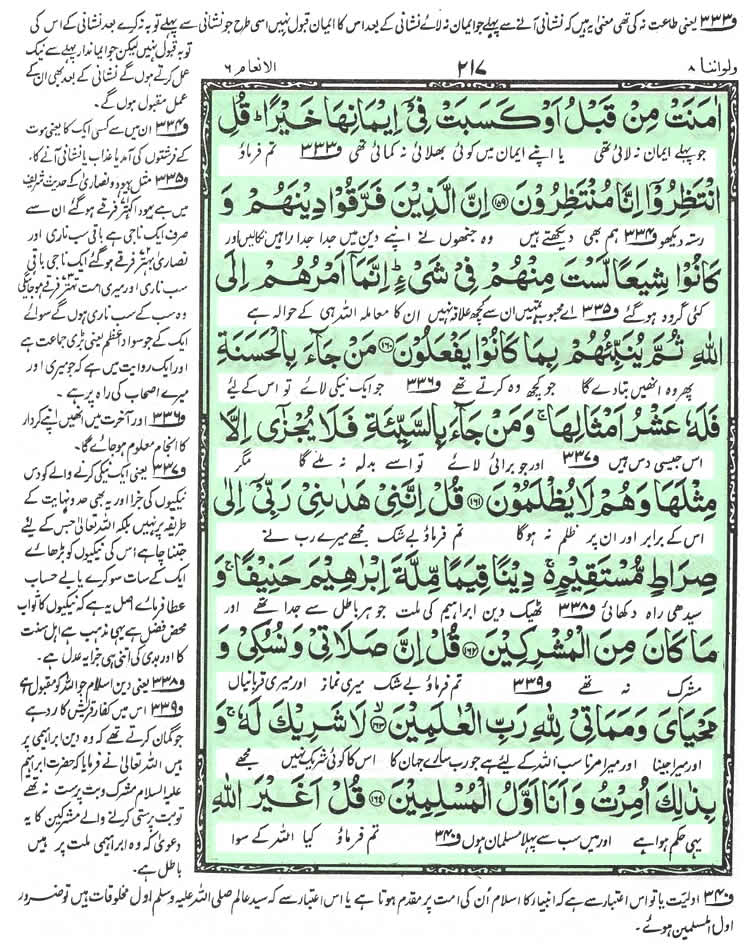 ف۳۳۳ یعنی طاعت نہ کی تھی معنی یہ ہیں کہ نشانی آنے سے پہلے جو ایمان نہ لائے نشانی کے بعد اس کا ایمان قبول نہیں اسی طرح جو نشانی سے پہلے توبہ نہ کرے بعد نشانی کے اس کی
توبہ قبول نہیں لیکن جو ایماندار پہلے سے نیک
عمل کرتے ہوں گے نشانی کے بعد بھی ان کے
عمل مقبول ہوں گے۔
ف۳۳۴ ان میں سے کسی ایک کا یعنی موت
کے فرشتوں کی آمد یا عذاب یا نشانی آنے کا۔
ف۳۳۵ مثل یہود و نصاریٰ کے حدیث شریف
میں ہے یہود اکہتر فرقے ہوگئے ان سے
صرف ایک ناجی ہے باقی سب ناری اور
نصاریٰ بہتر فرقے ہوگئے ایک ناجی باقی
سب ناری اور میری امت تہتر فرقے ہوجائیگی
وہ سب کے سب ناری ہوں گے سوائے
ایک کے جو سواد اعظم یعنی بڑی جماعت ہے
اور ایک روایت میں ہے کہ جو میری اور
میرے اصحاب کی راہ پر ہے۔
ف۳۳۶ اور آخرت میں انھیں اپنے کردار
کا انجام معلوم ہوجائے گا۔
ف۳۳۷ یعنی ایک نیکی کرنے والے کو دس
نیکیوں کی جزا اور یہ بھی حد و نہایت کے
طریقہ پر نہیں بلکہ اللہ تعالیٰ جس کے لیے
جتنا چاہے اُس کی نیکیوں کو بڑھائے
ایک کے سات سو کرے یا بے حساب
عطا فرمائے اصل یہ ہے کہ نیکیوں کا ثواب
محض فضل ہے یہی مذہب ہے اہل سنت
کا اور بدی کی اتنی ہی جزا یہ عدل ہے۔
ف۳۳۸ یعنی دین اسلام جو اللہ کو مقبول ہے
ف۳۳۹ اس میں کفار قریش کا رد ہے
جو گمان کرتے تھے کہ وہ دین ابراہیمی پر
ہیں اللہ تعالیٰ نے فرمایا کہ حضرت ابراہیم
علیہ السلام مشرک و بت پرست نہ تھے
تو بت پرستی کرنے والے مشرکین کا یہ
دعویٰ کہ وہ ابراہیمی ملت پر ہیں
باطل ہے۔
ولواننا ۸ ۲۱۷ الانعام ۶
اٰمَنَتْ مِنْ قَبْلُ اَوْ كَسَبَتْ فِیْۤ اِیْمَانِهَا خَیْرًاؕ قُلِ
جو پہلے ایمان نہ لائی تھی یا اپنے ایمان میں کوئی بھلائی نہ کمائی تھی ف۳۳۳ تم فرماؤ
انْتَظِرُوْۤا اِنَّا مُنْتَظِرُوْنَ۝۱۵۹ اِنَّ الَّذِیْنَ فَرَّقُوْا دِیْنَهُمْ وَ
رستہ دیکھو ف۳۳۴ ہم بھی دیکھتے ہیں وہ جنھوں نے اپنے دین میں جدا جدا راہیں نکالیں اور
كَانُوْا شِیَعًا لَّسْتَ مِنْهُمْ فِیْ شَیْءٍؕ اِنَّمَاۤ اَمْرُهُمْ اِلَى
کئی گروہ ہوگئے ف۳۳۵ اے محبوب تمہیں ان سے کچھ علاقہ نہیں ان کا معاملہ اللہ ہی کے حوالہ ہے
اللّٰهِ ثُمَّ یُنَبِّئُهُمْ بِمَا كَانُوْا یَفْعَلُوْنَ۝۱۶۰ مَنْ جَآءَ بِالْحَسَنَةِ
پھر وہ انھیں بتادے گا جو کچھ وہ کرتے تھے ف۳۳۶ جو ایک نیکی لائے تو اس کے لیے
فَلَهٗ عَشْرُ اَمْثَالِهَاۚ وَ مَنْ جَآءَ بِالسَّیِّئَةِ فَلَا یُجْزٰۤى اِلَّا
اس جیسی دس ہیں ف۳۳۷ اور جو برائی لائے تو اسے بدلہ نہ ملے گا مگر
مِثْلَهَا وَ هُمْ لَا یُظْلَمُوْنَ۝۱۶۱ قُلْ اِنَّنِیْ هَدٰىنِیْ رَبِّیْۤ اِلٰى
اس کے برابر اور ان پر ظلم نہ ہوگا تم فرماؤ بے شک مجھے میرے رب نے
صِرَاطٍ مُّسْتَقِیْمٍۚ۬ دِیْنًا قِیَمًا مِّلَّةَ اِبْرٰهِیْمَ حَنِیْفًاۚ وَ
سیدھی راہ دکھائی ف۳۳۸ ٹھیک دین ابراہیم کی ملت جو ہر باطل سے جدا تھے اور
مَا كَانَ مِنَ الْمُشْرِكِیْنَ۝۱۶۲ قُلْ اِنَّ صَلَاتِیْ وَ نُسُكِیْ وَ
مشرک نہ تھے ف۳۳۹ تم فرماؤ بے شک میری نماز اور میری قربانیاں
مَحْیَایَ وَ مَمَاتِیْ لِلّٰهِ رَبِّ الْعٰلَمِیْنَۙ۝۱۶۳ لَا شَرِیْكَ لَهٗۚ وَ
اور میرا جینا اور میرا مرنا سب اللہ کے لیے ہے جو رب سارے جہان کا اس کا کوئی شریک نہیں مجھے
بِذٰلِكَ اُمِرْتُ وَ اَنَا اَوَّلُ الْمُسْلِمِیْنَ۝۱۶۴ قُلْ اَغَیْرَ اللّٰهِ
یہی حکم ہوا ہے اور میں سب سے پہلا مسلمان ہوں ف۳۴۰ تم فرماؤ کیا اللہ کے سوا
ف۳۴۰ اولیّت یا تو اس اعتبار سے ہے کہ انبیاء کا اسلام اُن کی امت پر مقدم ہوتا ہے یا اس اعتبار سے کہ سید عالم صلی اللہ علیہ وسلم اول مخلوقات ہیں تو ضرور
اول المسلمین ہوئے۔